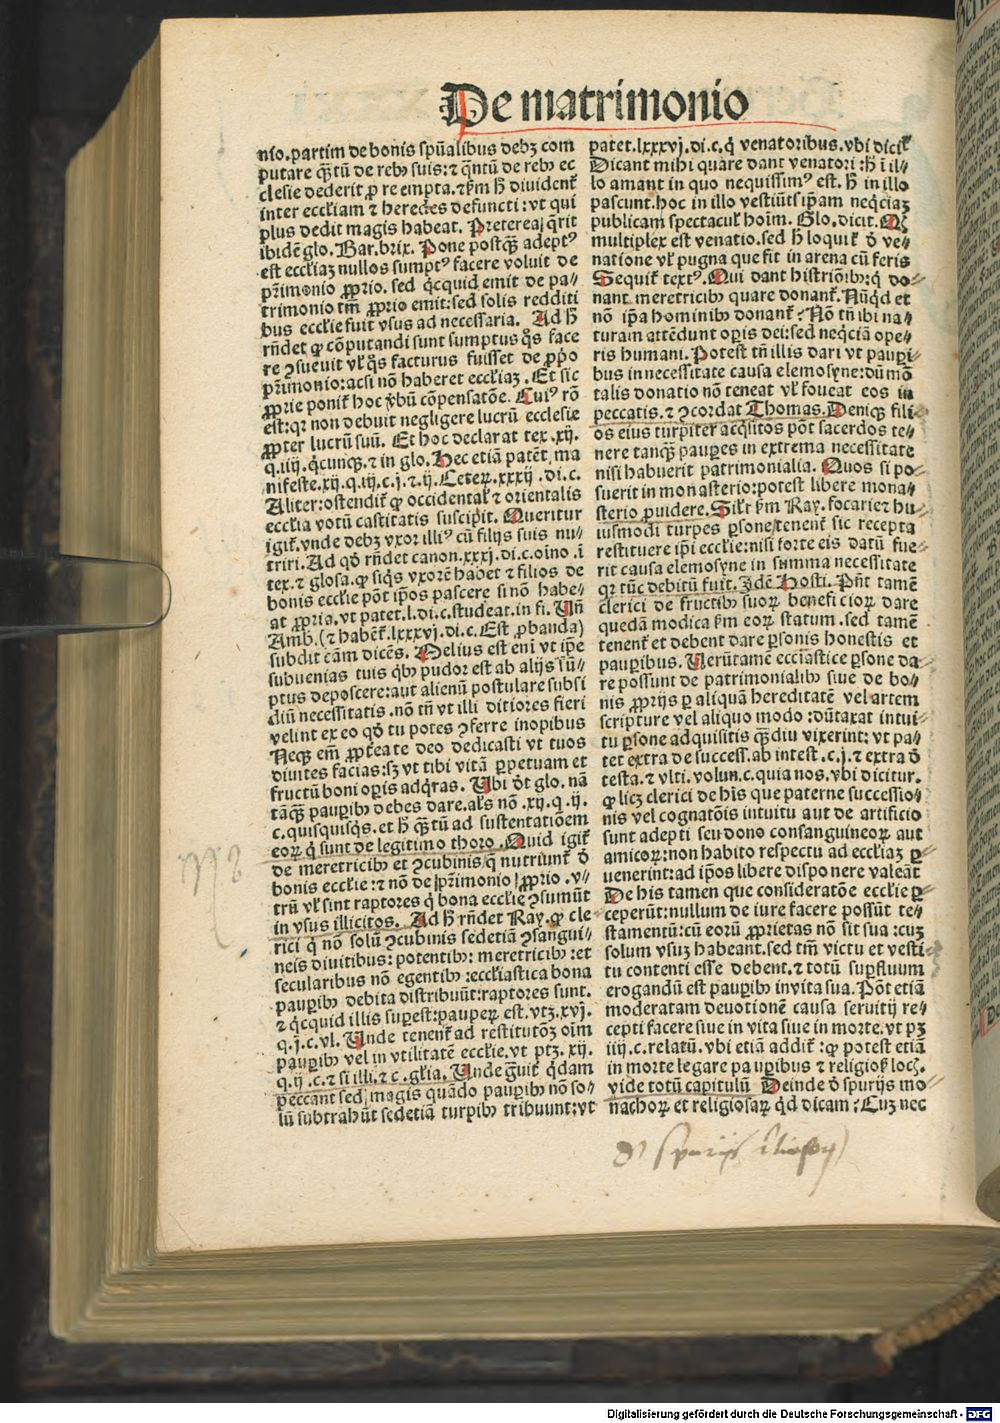 De matrimonio
nio.partim de bonis spūalibus debꝫ com
putare qͣꝫtū de rebꝰ suis:⁊ qͣntū de rebꝰ ec
clesie dederit ꝓ re empta.⁊ ẜm ħ diuidentᷣ
inter eccłiam ⁊ heredes defuncti:vt qui
plus dedit magis habeat. Preterea q̄rit
ibidē glo. Bar.brix. Pone postqͣꝫ adeptꝰ
est eccłiaꝫ nullos sumptꝰ facere voluit de
pr̄imonio ꝓprio. sed qͥcquid emit de pa⸗
trimonio tm̄ ꝓprio emit:sed solis redditi
bus eccłie fuit vsus ad necessaria. Ad ħ
rn̄det ꝙ cōputandi sunt sumptus qͦs face
re ꝯsueuit vł qͦs facturus fuisset de ꝓpͥo
pr̄imonio:acsi nō haberet eccłiaꝫ. Et sic
ꝓprie ponitᷣ hoc ꝟbū cōpensatōe. Cuiꝰ rō
est:qꝛ non debuit negligere lucrū ecclesie
ꝓpter lucrū suū. Et hoc declarat tex.xij.
q.iij.qͥcunqꝫ.⁊ in glo. Hec etiā patēt ma
nifeste.xij.q.iij.c.j.⁊.ij. Ceteꝝ.xxxij.di.c.
Aliter:ostenditᷣ ꝙ occidentał ⁊ orientalis
eccłia votū castitatis suscipit. Queritur
igitᷣ.vnde debꝫ vxor illiꝰ cū filijs suis nu⸗
triri. Ad qd̄ rn̄det canon.xxxj.di.c.oīno.ī
tex.⁊ glosa.ꝙ siqͥs vxorē habet ⁊ filios de
bonis eccłie pōt ip̄os pascere si nō habe⸗
at ꝓpria.vt patet.l.di.c.studeat.in fi. Un̄
Amb.(⁊ habetᷣ.lxxxvj.di.c. Est ꝓbanda)
subdit cām dicēs. Melius est eni vt ip̄e
subuenias tuis qͥbꝰ pudor est ab alijs sū⸗
ptus deposcere:aut alienū postulare subsi
diū necessitatis.nō tn̄ vt illi ditiores fieri
velint ex eo qd̄ tu potes ꝯferre inopibus
Neqꝫ em̄ ꝓpterea te deo dedicasti vt tuos
diuites facias:sꝫ vt tibi vitā ꝑpetuam et
fructū boni oꝑis adqͥras. Ubi dt̄ glo. nā
tāqͣꝫ pauꝑibꝰ debes dare.alꝰs nō.xij.q.ij.
c.quisquisqͣs.et ħ qͣꝫtū ad sustentatiōem
eoꝝ qͥ sunt de legitimo thoro. Quid igitᷣ
de meretricibꝰ et ꝯcubinis qͥ nutriuntᷣ ď
bonis eccłie:⁊ nō de pr̄imonio ꝓprio.v⸗
trū vł sint raptores qͥ bona eccłie ꝯsumūt
in vsus illicitos. Ad ħ rn̄det Ray.ꝙ cle
rici qͥ nō solū ꝯcubinis sedetiā ꝯsangui⸗
neis diuitibus: potentibꝰ: meretricibꝰ:et
secularibus nō egentibꝰ:eccłiastica bona
pauꝑibꝰ debita distribuūt:raptores sunt.
⁊ qͥcquid illis suꝑest:pauꝑeꝝ est.vtꝫ.xvj.
q.j.c.vl. Unde tenentᷣ ad restitutōꝫ oīm
pauꝑibꝰ vel in vtilitatē eccłie.vt ptꝫ.xij.
q.ij.c.⁊ si illi.⁊ c.głia. Unde gͣuitᷣ qͥdam
peccant sed magis quādo pauꝑibꝰ nō so⸗
lū subtrahūt sedetiā turpibꝰ tribuunt:vt
patet.lxxxvj.di.c.qͥ venatoribus.vbi dicitᷣ
Dicant mihi quare dant venatori:ħ ī il⸗
lo amant in quo nequissimꝰ est. ħ in illo
pascunt.hoc in illo vestiūt:ip̄am neqͥciaꝫ
publicam spectacuł hoīm. Glo.dicit. Qꝫ
multiplex est venatio.sed ħ loquitᷣ ď ve⸗
natione vł pugna que fit in arena cū feris
Sequitᷣ textꝰ. Qui dant histriōibꝰ:qͥ do⸗
nant meretricibꝰ quare donantᷣ. Nūqͥd et
nō ip̄a hominibꝰ donantᷣ? Nō tn̄ ibi na⸗
turam attēdunt oꝑis dei:sed neqͥciā ope⸗
ris humani. Potest tn̄ illis dari vt pauꝑi⸗
bus in necessitate causa elemosyne:dūmō
talis donatio nō teneat vł foueat eos in
peccatis.⁊ ꝯcordat Thomas. Deniqꝫ fili⸗
os eius turpiter acqͥsitos pōt sacerdos te⸗
nere tanqͣꝫ pauꝑes in extrema necessitate
nisi habuerit patrimonialia. Quos si po⸗
suerit in monasterio:potest libere mona⸗
sterio ꝓuidere. Silꝰr ẜm Ray. focarie ⁊ hu⸗
iusmodi turpes ꝑsone tenentᷣ sic recepta
restituere ip̄i eccłie:nisi forte eis datū fue⸗
rit causa elemosyne in summa necessitate
qꝛ tūc debitū fuit. Idē Hosti. Pn̄t tamē
clerici de fructibꝰ suoꝝ beneficioꝝ dare
quedā modica ẜm eoꝝ statum. sed tamē
tenentᷣ et debent dare ꝑsonis honestis et
pauꝑibus. Uerūtamē eccīastice ꝑsone da⸗
re possunt de patrimonialibꝰ siue de bo⸗
nis ꝓprijs ꝑ aliquā hereditatē vel artem
scripture vel aliquo modo:dūtaxat intui⸗
tu ꝑsone adquisitis qͣꝫdiu vixerint: vt pa⸗
tet extra de success.ab intest.c.j.⁊ extra ď
testa.⁊ vlti.volun.c.quia nos.vbi dicitur.
ꝙ licꝫ clerici de his que paterne successio⸗
nis vel cognatōis intuitu aut de artificio
sunt adepti seu dono consanguineoꝝ aut
amicoꝝ:non habito respectu ad eccłiaꝫ ꝑ⸗
uenerint:ad ip̄os libere disponere valeāt
De his tamen que consideratōe eccłie ꝑ⸗
ceperūt:nullum de iure facere possūt te⸗
stamentū:cū eorū ꝓprietas nō sit sua:cuꝫ
solum vsuꝫ habeant.sed tm̄ victu et vesti⸗
tu contenti esse debent.⁊ totū suꝑfluum
erogandū est pauꝑibus in vita sua. Pōt etiā
moderatam deuotionē causa seruitij re⸗
cepti facere siue in vita siue in morte.vt pꝫ
iiij.c.relatū.vbi etiā additᷣ:ꝙ potest etiā
in morte legare pauꝑibus ⁊ religioẜ locꝭ.
vide totū capitulū Deinde ď spurijs mo⸗
nachoꝝ et religiosaꝝ qͥd dicam? Cuꝫ nec
Digitalisierung gefördert durch die Deutsche Forschungsgemeinschaft - DFG